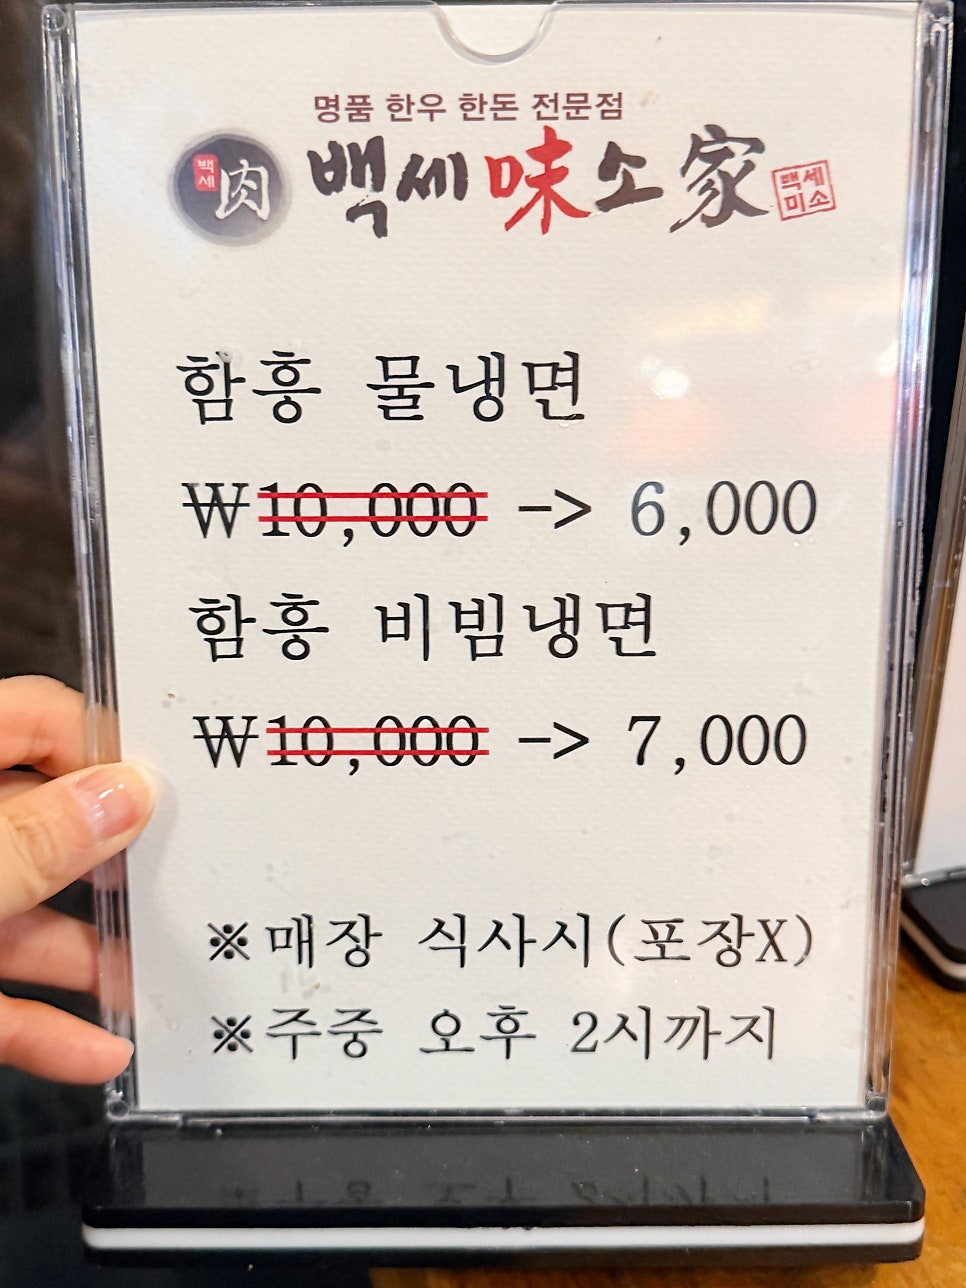 명품 한우 한돈 전문점
백세 肉 백세味소家 백세미소
함흥 물냉면
₩10,000 -> 6,000
함흥 비빔냉면
₩10,000 -> 7,000
※매장 식사시(포장X)
※주중 오후 2시까지